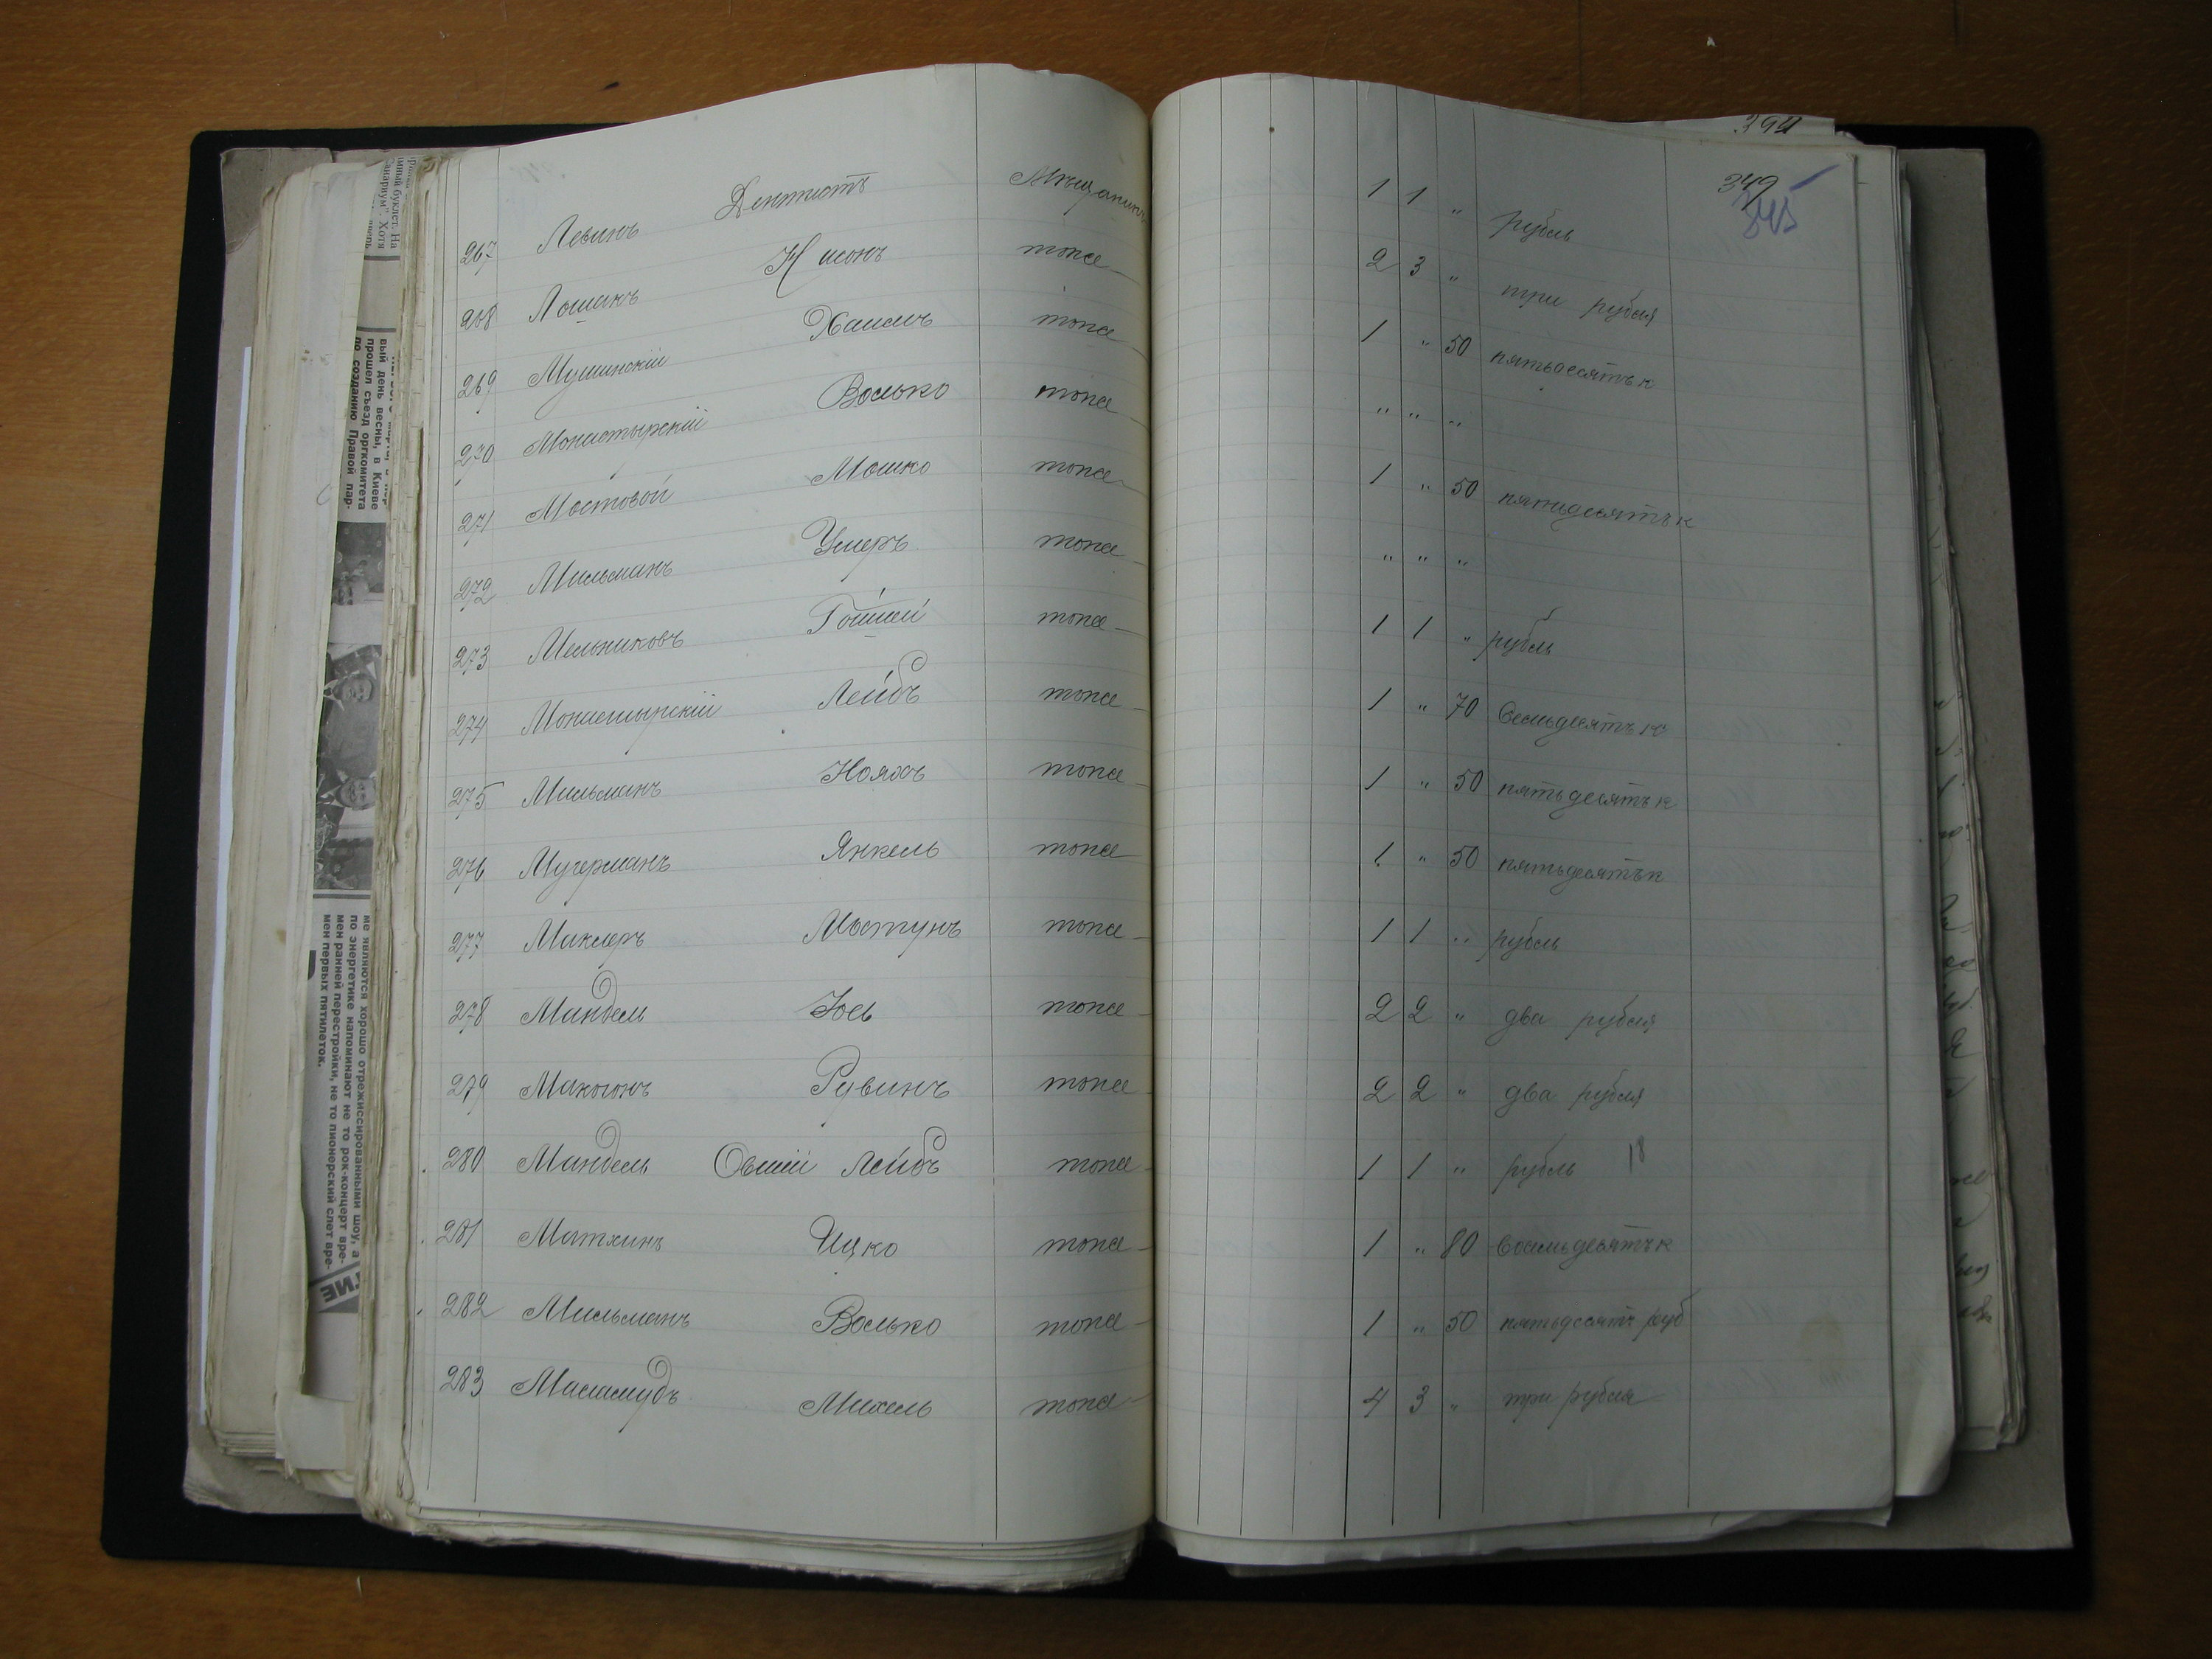 394
349
345
267 Левинъ Дентистъ Мѣщанинъ 1 1 " рубль
268 Лошакъ Нисонъ тоже 2 3 " три рубля
269 Мушинскій Хаимъ тоже 1 " 50 пятьдесятъ к
270 Монастырскій Волько тоже " " "
271 Мостовой Мошко тоже 1 " 50 пятьдесятъ к
272 Мильманъ Умеръ тоже " " "
273 Мельниковъ тоже 1 1 " рубль
274 Монастырскій Лейбъ тоже 1 " 70 Семьдесятъ к
275 Мильманъ Нояхъ тоже 1 " 50 пятьдесятъ к
276 Мучерманъ Янкель тоже 1 " 50 пятьдесятъ к
277 Маклеръ Мостунъ тоже 1 1 " рубль
278 Мандель Іось тоже 2 2 " два рубля
279 Макогонъ Рувинъ тоже 2 2 " два рубля
280 Мандель Овшій Лейбъ тоже 1 1 " рубль 18
281 Маткинъ Ицко тоже 1 " 80 Восемьдесятъ к
282 Мильманъ Волько тоже 1 " 50 пятьдесятъ руб
283 Маламудъ Михель тоже 4 3 " три рубля
вый день весны, в Киеве
прошел съезд оргкомитета
по созданию Правой пар-
ме являются хорошо отрежиссированными шоу, а
по энергетике напоминают не то рок-концерт вре-
мен ранней перестройки, не то пионерский слет вре-
мен первых пятилеток.